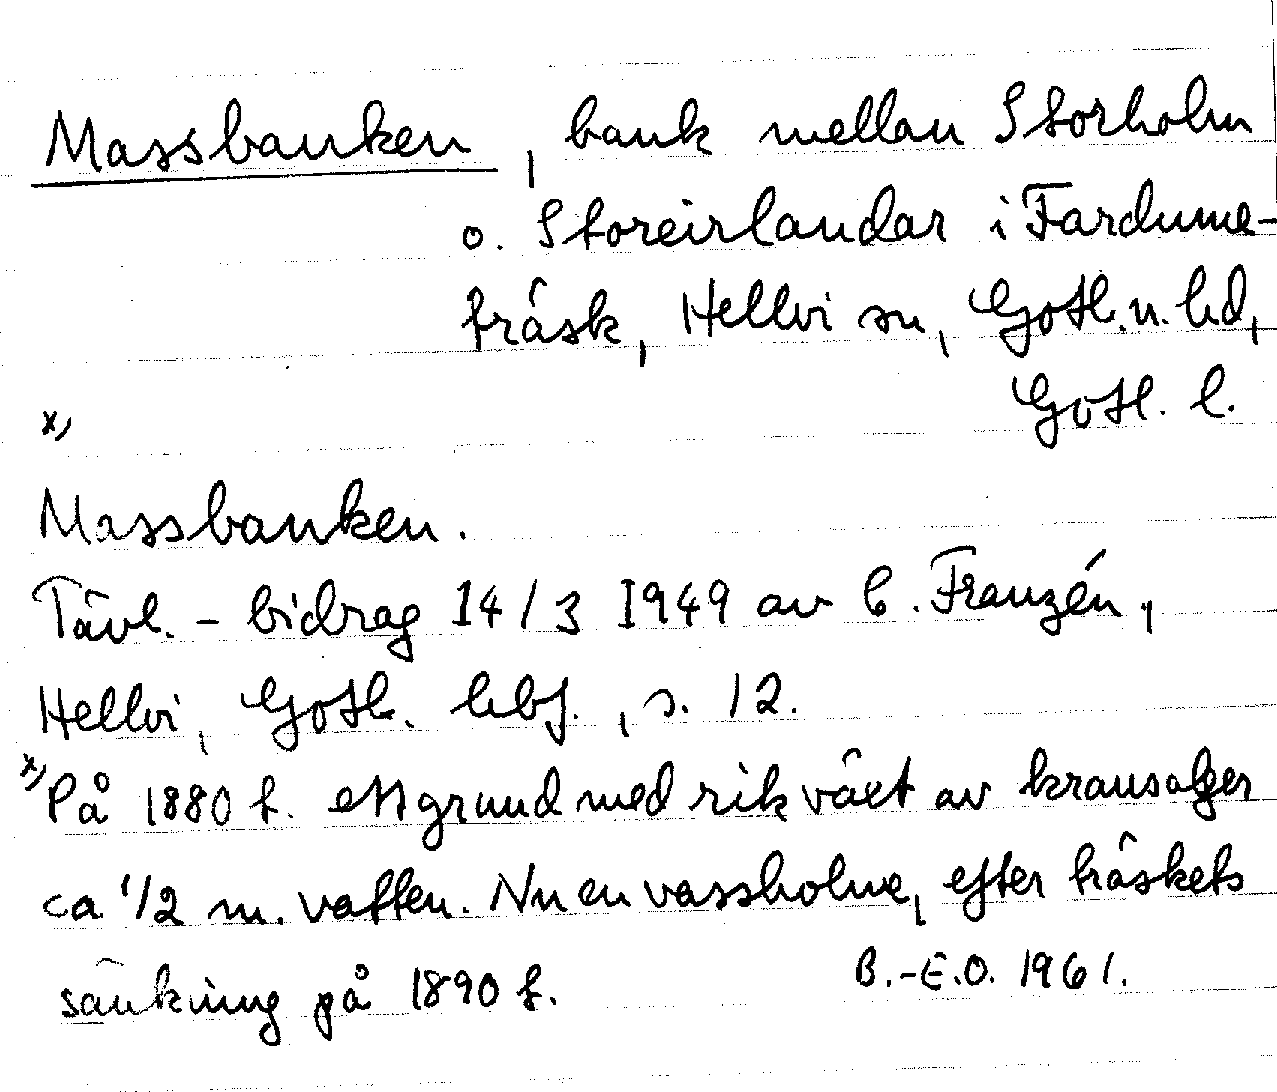 Massbanken, bank mellan Storholm
o. Storeirlandar i Fardume-
träsk, Hellvi sn, Gotl. n. hd,
Gotl. l.
x)
Massbanken.
Tävl.-bidrag 14/3 1949 av C. Franzén,
Hellvi, Gotl. hbf., s. 12.
x) På 1880 t. ett grund med rik växt av kransalger
ca 1/2 m. vatten. Nu en vassholme, efter träskets
sänkning på 1890 t.
B.-E.O. 1961.